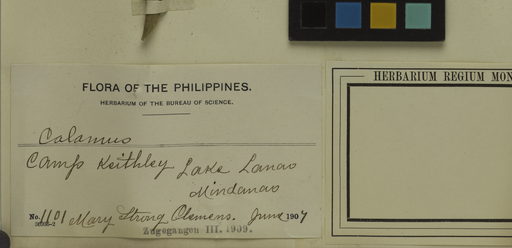 FLORA OF THE PHILIPPINES.
HERBARIUM OF THE BUREAU OF SCIENCE.
Calamus
Camp Keithley Lake Lanao
Mindanao
No. 1101 Mary Strong Clemens. June 1907
Zugegangen III. 1909.
HERBARIUM REGIUM MON